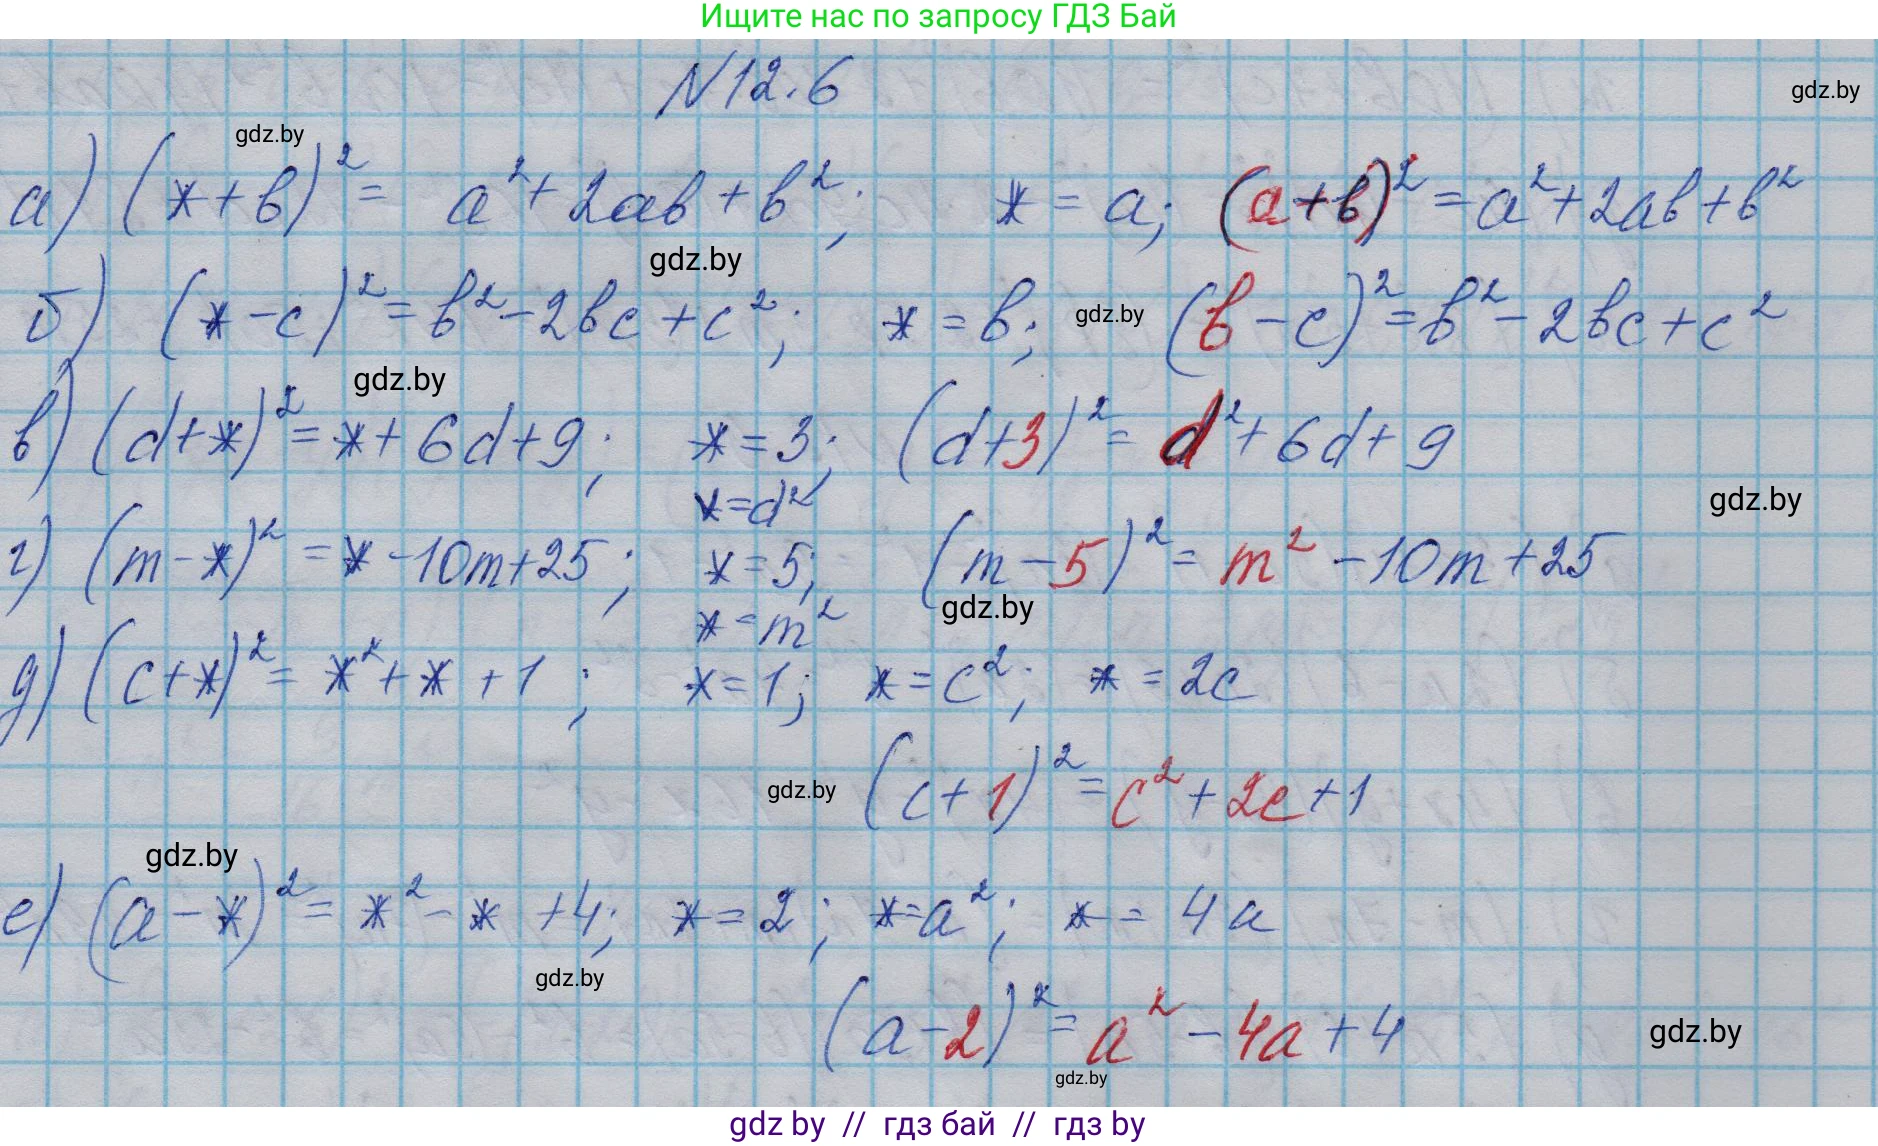 Ищите нас по запросу ГДЗ Бай
N12.6
gdz.by
gdz.by
а) (* + b)² = a² + 2ab + b²; * = a; (a + b)² = a² + 2ab + b²
gdz.by
б) (* - c)² = b² - 2bc + c²; * = b; gdz.by (b - c)² = b² - 2bc + c²
gdz.by
в) (d + *)² = * + 6d + 9; * = 3; (d + 3)² = d² + 6d + 9
* = d²
gdz.by
г) (m - *)² = * - 10m + 25; * = 5; (m - 5)² = m² - 10m + 25
gdz.by
* = m²
д) (c + *)² = *² + * + 1; * = 1; * = c²; * = 2c
gdz.by (c + 1)² = c² + 2c + 1
gdz.by
е) (a - *)² = *² - * + 4; * = 2; * = a²; * = 4a
gdz.by
(a - 2)² = a² - 4a + 4
gdz.by
gdz.by
gdz by // гдз бай // гдз by